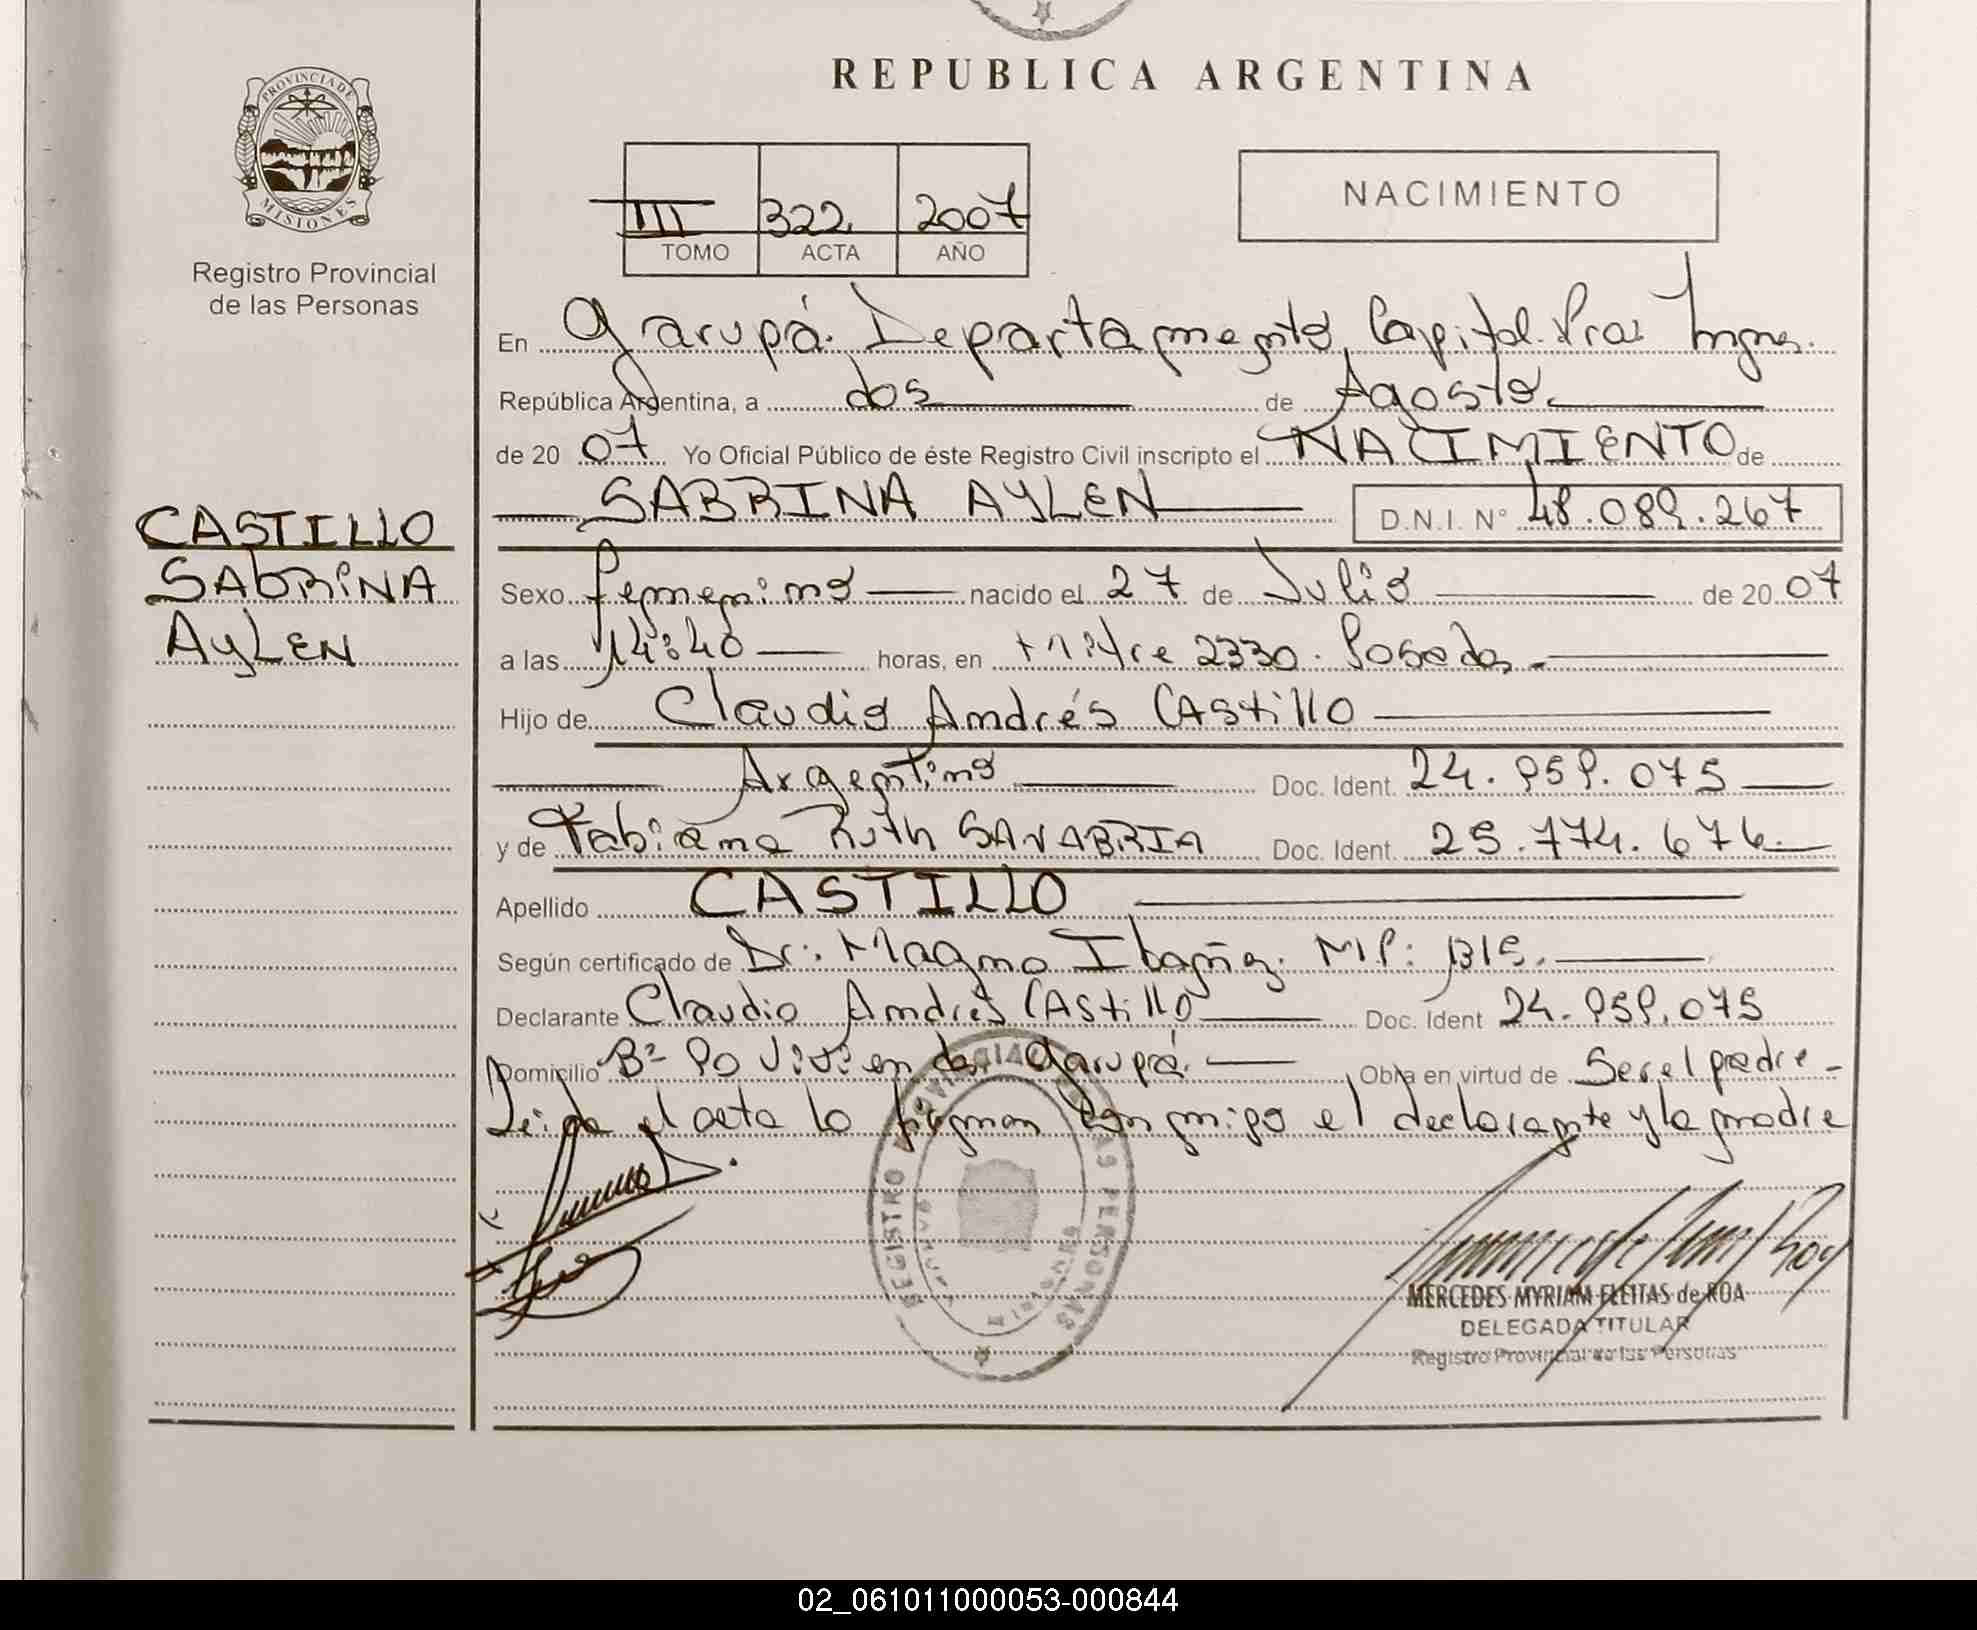 REPUBLICA ARGENTINA
PROVINCIA DE
MISIONES
Registro Provincial
de las Personas
III 322 2007
TOMO ACTA AÑO
NACIMIENTO
En Garupá. Departamento Capital. Pcia: Mnes.
República Argentina, a dos de Agosto
de 20 07 Yo Oficial Público de éste Registro Civil inscripto el NACIMIENTO de
SABRINA AYLEN D.N.I. N° 48.089.267
CASTILLO
SABRINA
AYLEN
Sexo femenino nacido el 27 de Julio de 20 07
a las 14:40 horas, en Mitre 2330. Posadas.
Hijo de Claudio Andrés CAStillO
Argentino Doc. Ident. 24.959.075
y de Fabiana Ruth SANABRIA Doc. Ident. 25.774.676
Apellido CASTILLO
Según certificado de Dr: Magno Ibañez. MP: 1315.
Declarante Claudio Andrés CAStillO Doc. Ident 24.959.075
Domicilio B° 90 Viviendas Garupá. Obra en virtud de Ser el padre -
Leida el acta la firman conmigo el declarante y la madre
REGISTRO PROVINCIAL DE LAS PERSONAS
GARUPA
MISIONES
MERCEDES MYRIAM FLEITAS de ROA
DELEGADA TITULAR
Registro Provincial de las Personas
02_061011000053-000844